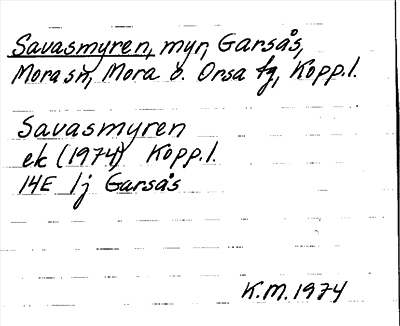 Savasmyren, myr, Garsås,
Mora sn, Mora o. Orsa fg, Kopp. l.
Savasmyren
ek (1974) Kopp. l.
14E 1j Garsås
K.M. 1974